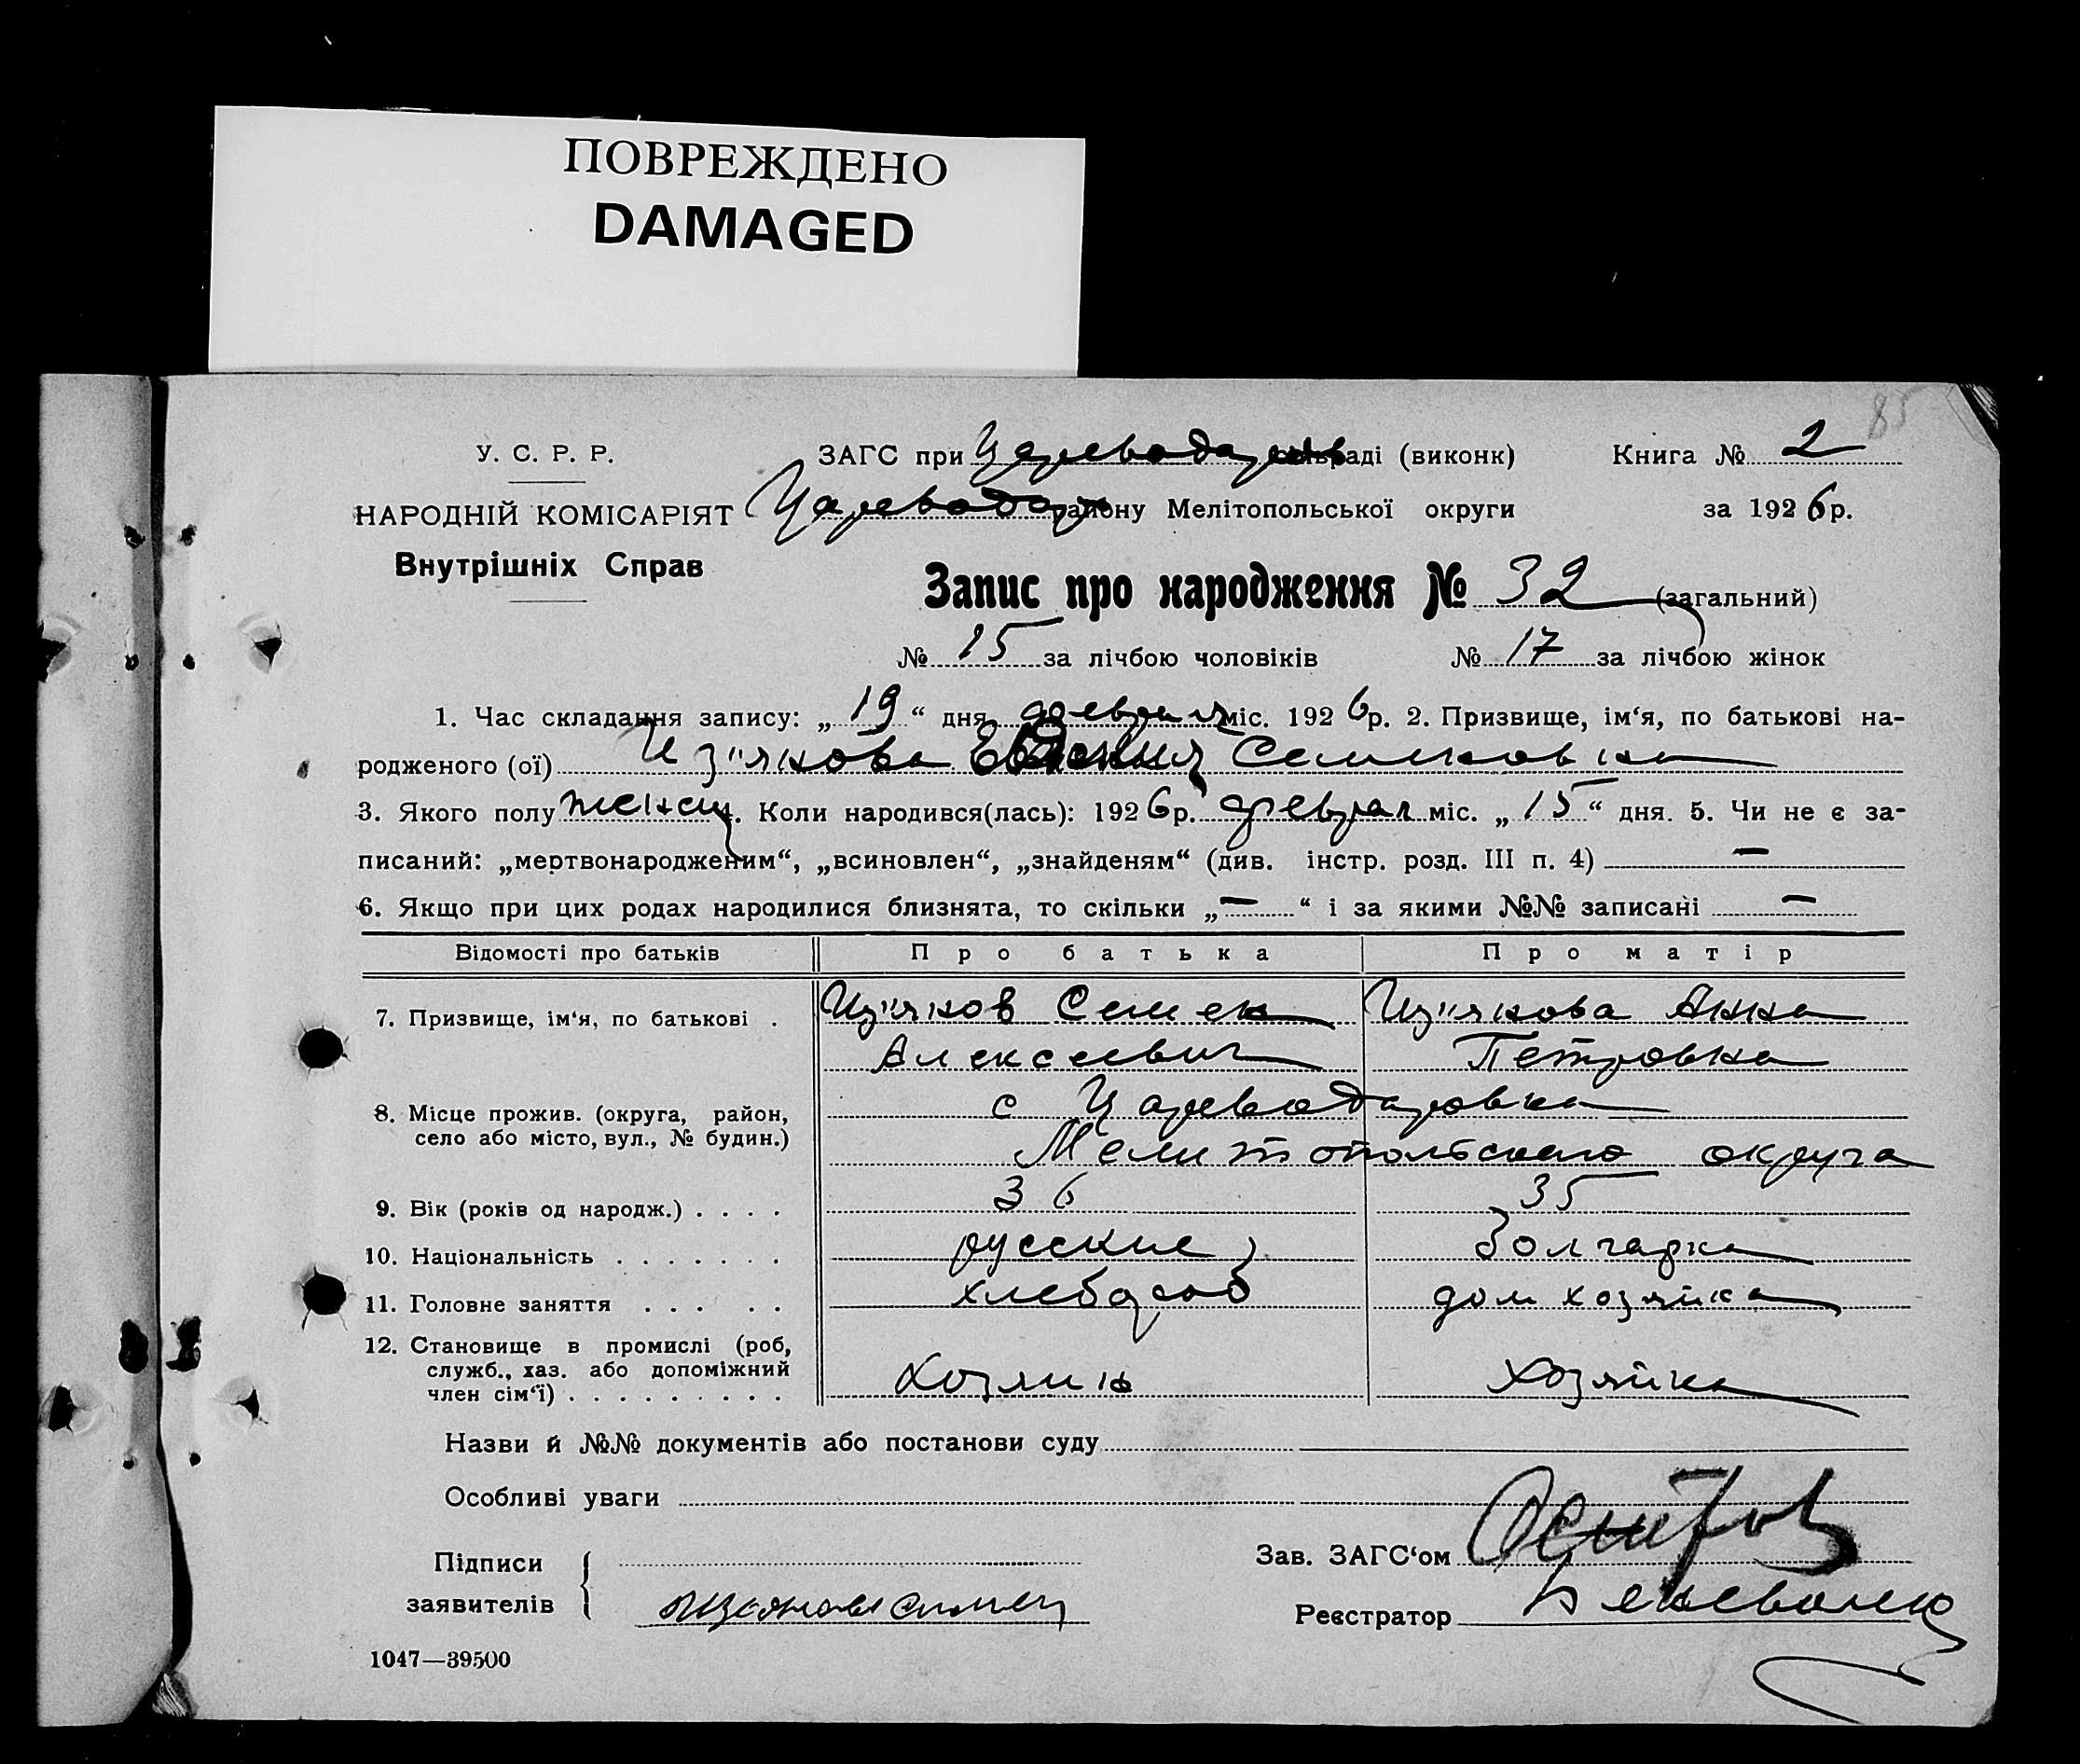 ПОВРЕЖДЕНО
DAMAGED
85
У. С. Р. Р. ЗАГС при Цареводар сільраді (виконк) Книга № 2
НАРОДНІЙ КОМІСАРІЯТ Цареводар району Мелітопольської округи за 1926 р.
Внутрішніх Справ
Запис про народження № 32 (загальний)
№ 15 за лічбою чоловіків № 17 за лічбою жінок
1. Час складання запису: „ 19 “ дня февраля міс. 1926 р. 2. Призвище, ім‘я, по батькові на-
родженого (ої) Из"якова Семеновна
3. Якого полу женск 4. Коли народився(лась): 1926 р. феврал міс. „ 15 “ дня. 5. Чи не є за-
писаний: „мертвонародженим“, „всиновлен“, „знайденям“ (див. інстр. розд. III п. 4) —
6. Якщо при цих родах народилися близнята, то скільки „ — “ і за якими №№ записані —
Відомості про батьків Про батька Про матір
7. Призвище, ім‘я, по батькові . Из"яков Семен Из"якова Анна
Алексеевич Петровна
8. Місце прожив. (округа, район, с Цареводаровка
село або місто, вул., № будин.) Мелитопольского округа
9. Вік (років од народж.) . . . . 36 35
10. Національність . . . . . . . русские болгарка
11. Головне заняття . . . . . хлебороб дом хозяйка
12. Становище в промислі (роб,
служб., хаз. або допоміжний
член сім‘ї) . . . . . . . . . хозяин хозяйка
Назви й №№ документів або постанови суду
Особливі уваги
Підписи Зав. ЗАГС‘ом
заявителів Реєстратор
1047—39500